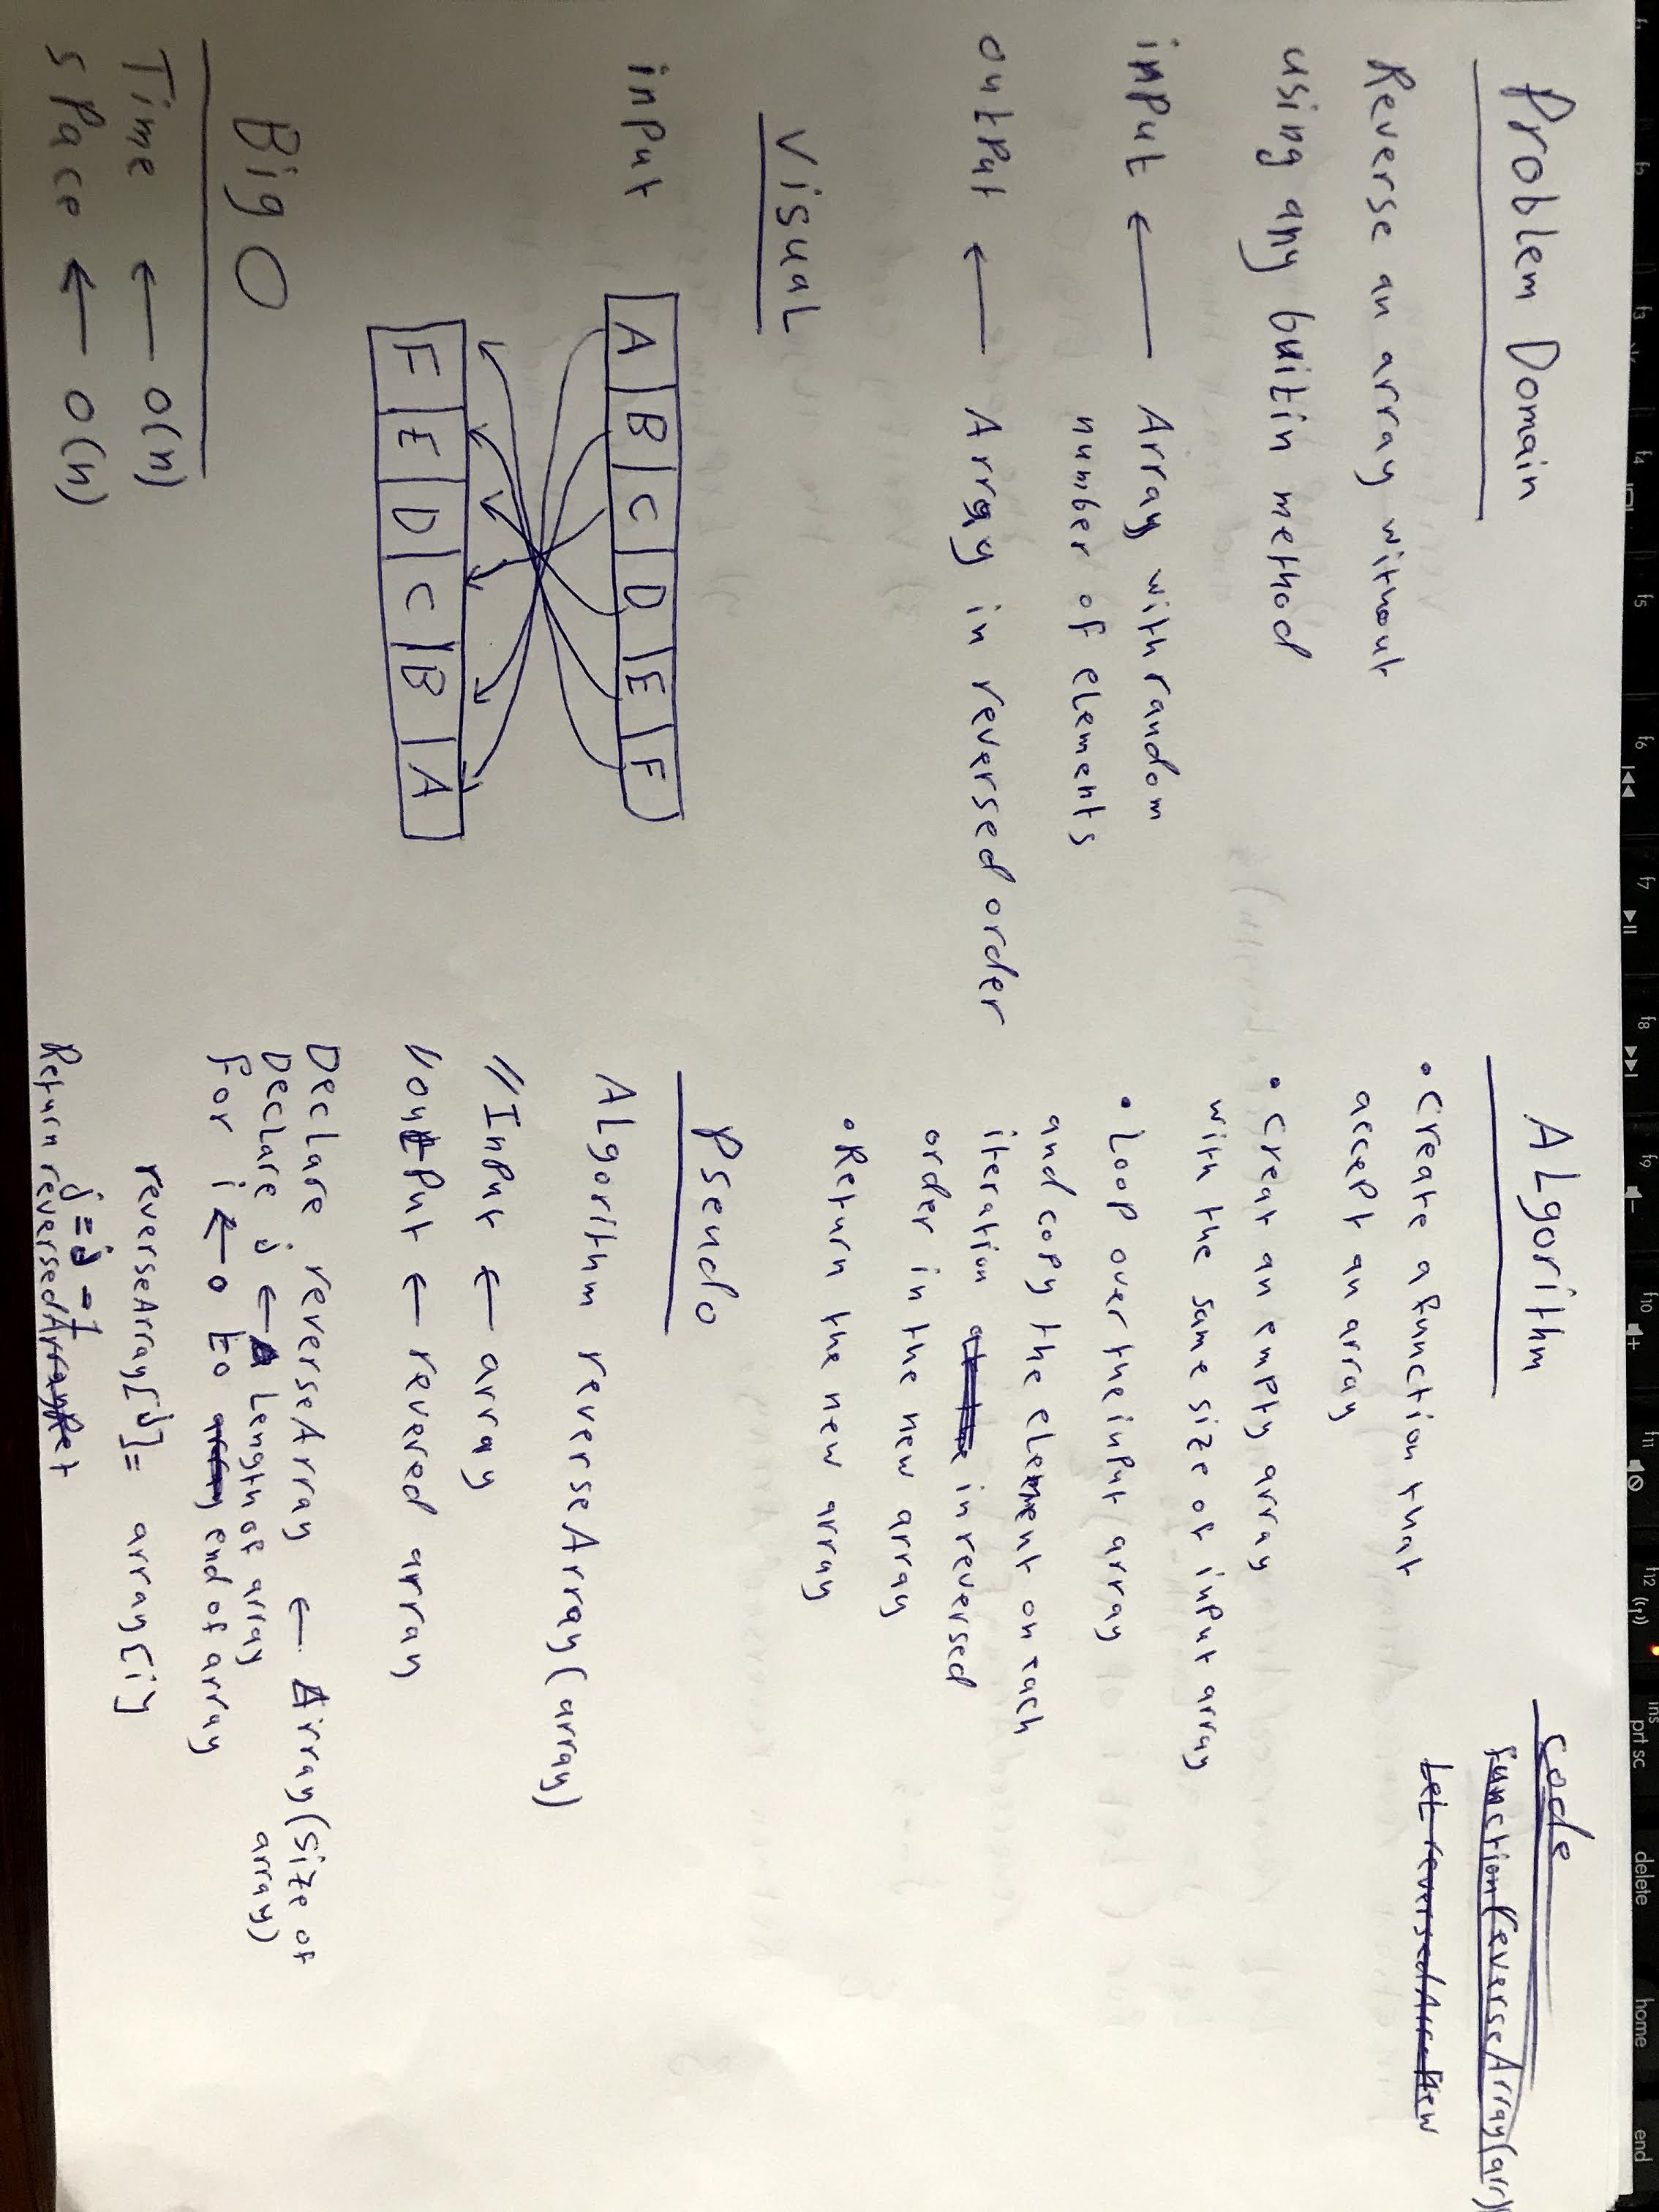 Problem Domain
Reverse an array without
using any builtin method
input ← Array with random
number of elements
output ← Array in reversed order
Visual
input
A B C D E F
F E D C B A
Big O
Time ← O(n)
space ← O(n)
Algorithm
• create a function that
accept an array
• creat an empty array
with the same size of input array
• Loop over the input array
and copy the element on each
iteration in reversed
order in the new array
• Return the new array
Pseudo
Algorithm reverseArray(array)
// Input ← array
// output ← revered array
Declare reverseArray ← Array(size of
array)
Declare j ← Length of array
For i ← 0 to end of array
reverseArray[j] = array[i]
j = j - 1
Return reversedArray
code
function(reverseArray(arr)
Let reversedArr = New
f1
f3
f4
f5
f6
f7
f8
f9
f10
f11
f12
ins
prt sc
delete
home
end